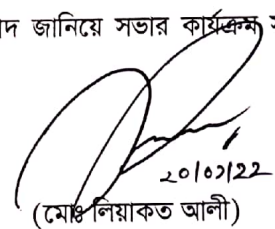 দ জানিয়ে সভার কার্যক্রম স
২০/০১/22
(মোঃ লিয়াকত আলী)